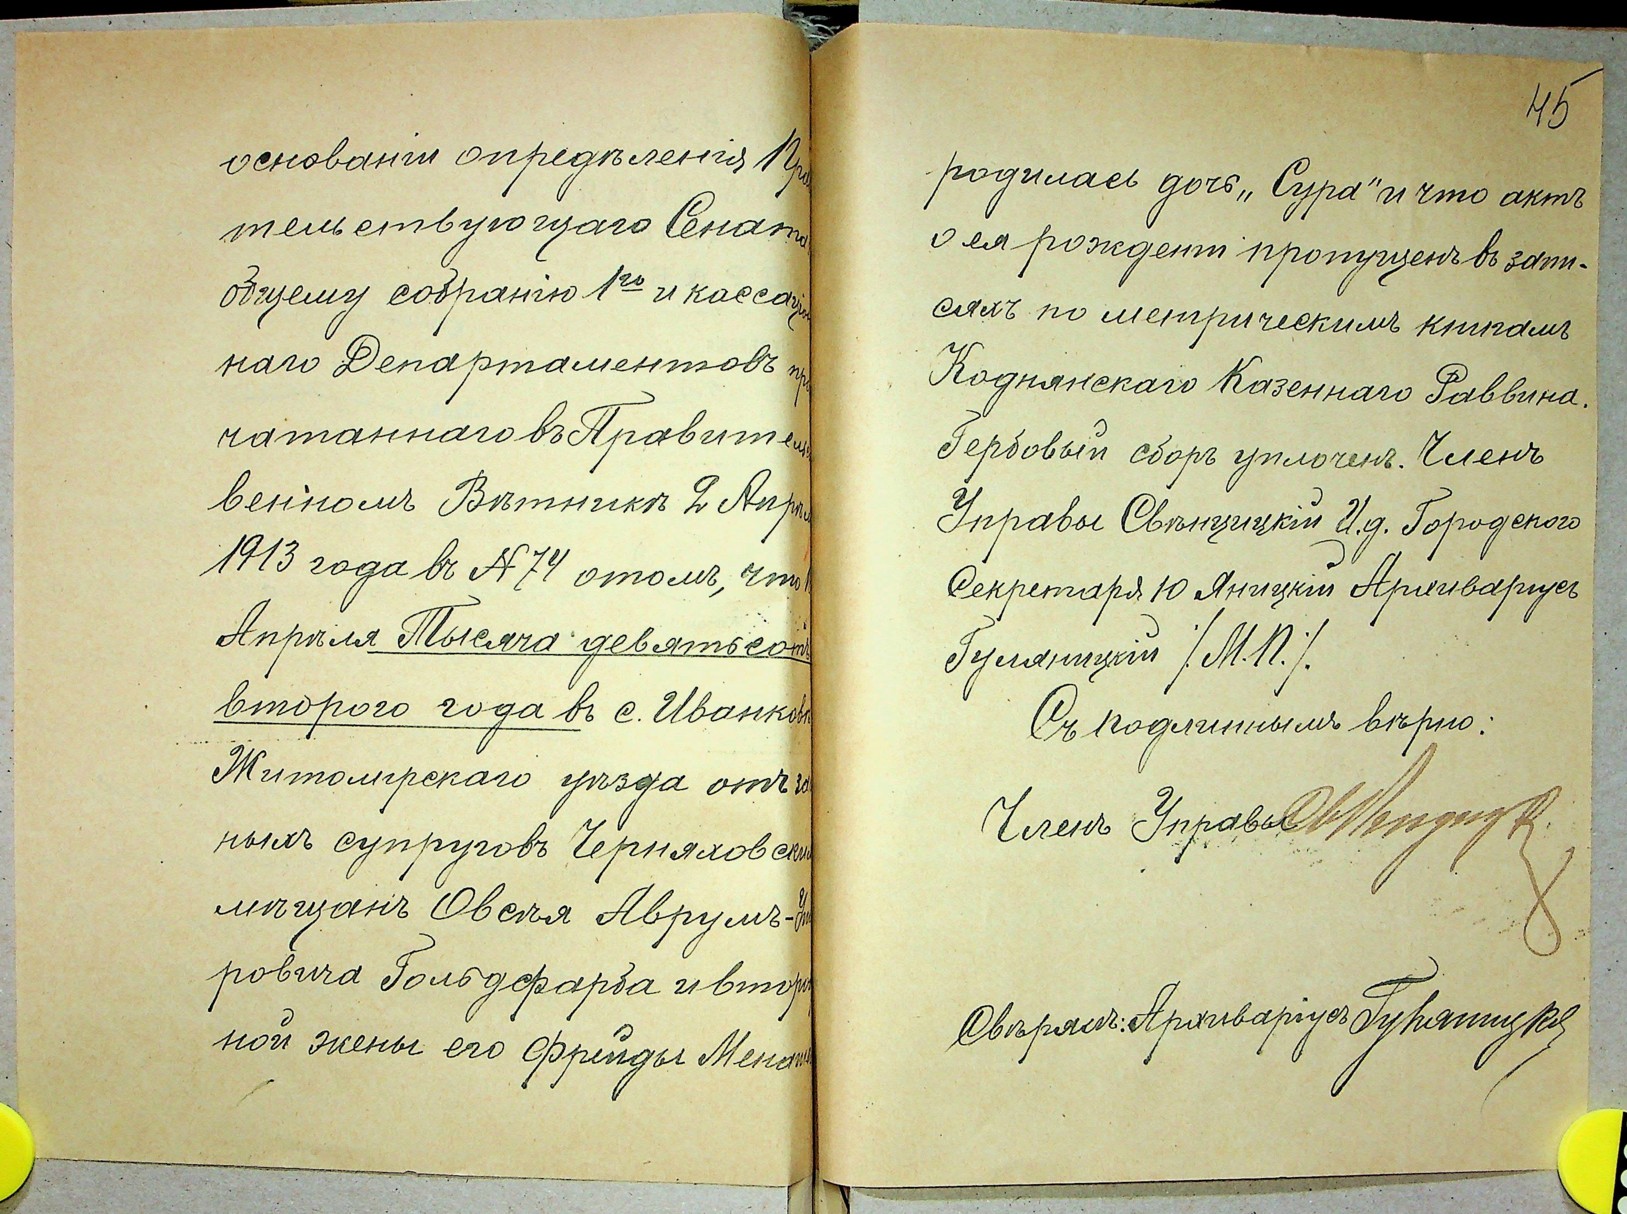 основаніи опредѣленія Пра
тельствующаго Сената
общему собранію 1го и кассаціон
наго Департаментовъ про
чатаннаго въ Правительс
венномъ Вѣтникѣ 2 Апрѣл
1913 года въ № 74 отомъ, что
Апрѣля Тысяча девятьсотъ
второго года въ с. Иванков
Житомірскаго уѣзда отъ за
ныхъ супруговъ Черняховски
мѣщанъ Овсѣя Аврумъ-
ровича Гольдфарба и втор
ной жены его Фрейды Мена
45
родилась дочь „Сура" и что актъ
о ея рожденіи пропущенъ въ запи-
сяхъ по метрическимъ книгамъ
Коднянскаго Казеннаго Раввина.
Гербовый сборъ уплоченъ. Членъ
Управы Свѣнцицкій И.д. Городского
Секретаря Ю Яницкій Архиваріусъ
Гуляницкій /.М.П./.
Съ подлиннымъ вѣрно:
Членъ Управы
Свѣрялъ: Архиваріусъ Гуляницкій